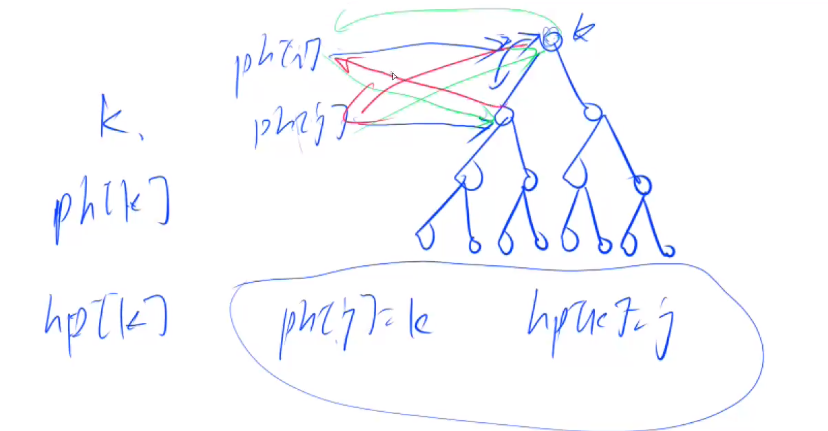 k
ph[i]
ph[j]
k,
ph[k]
hp[k]
ph[j]=k
hp[k]=j